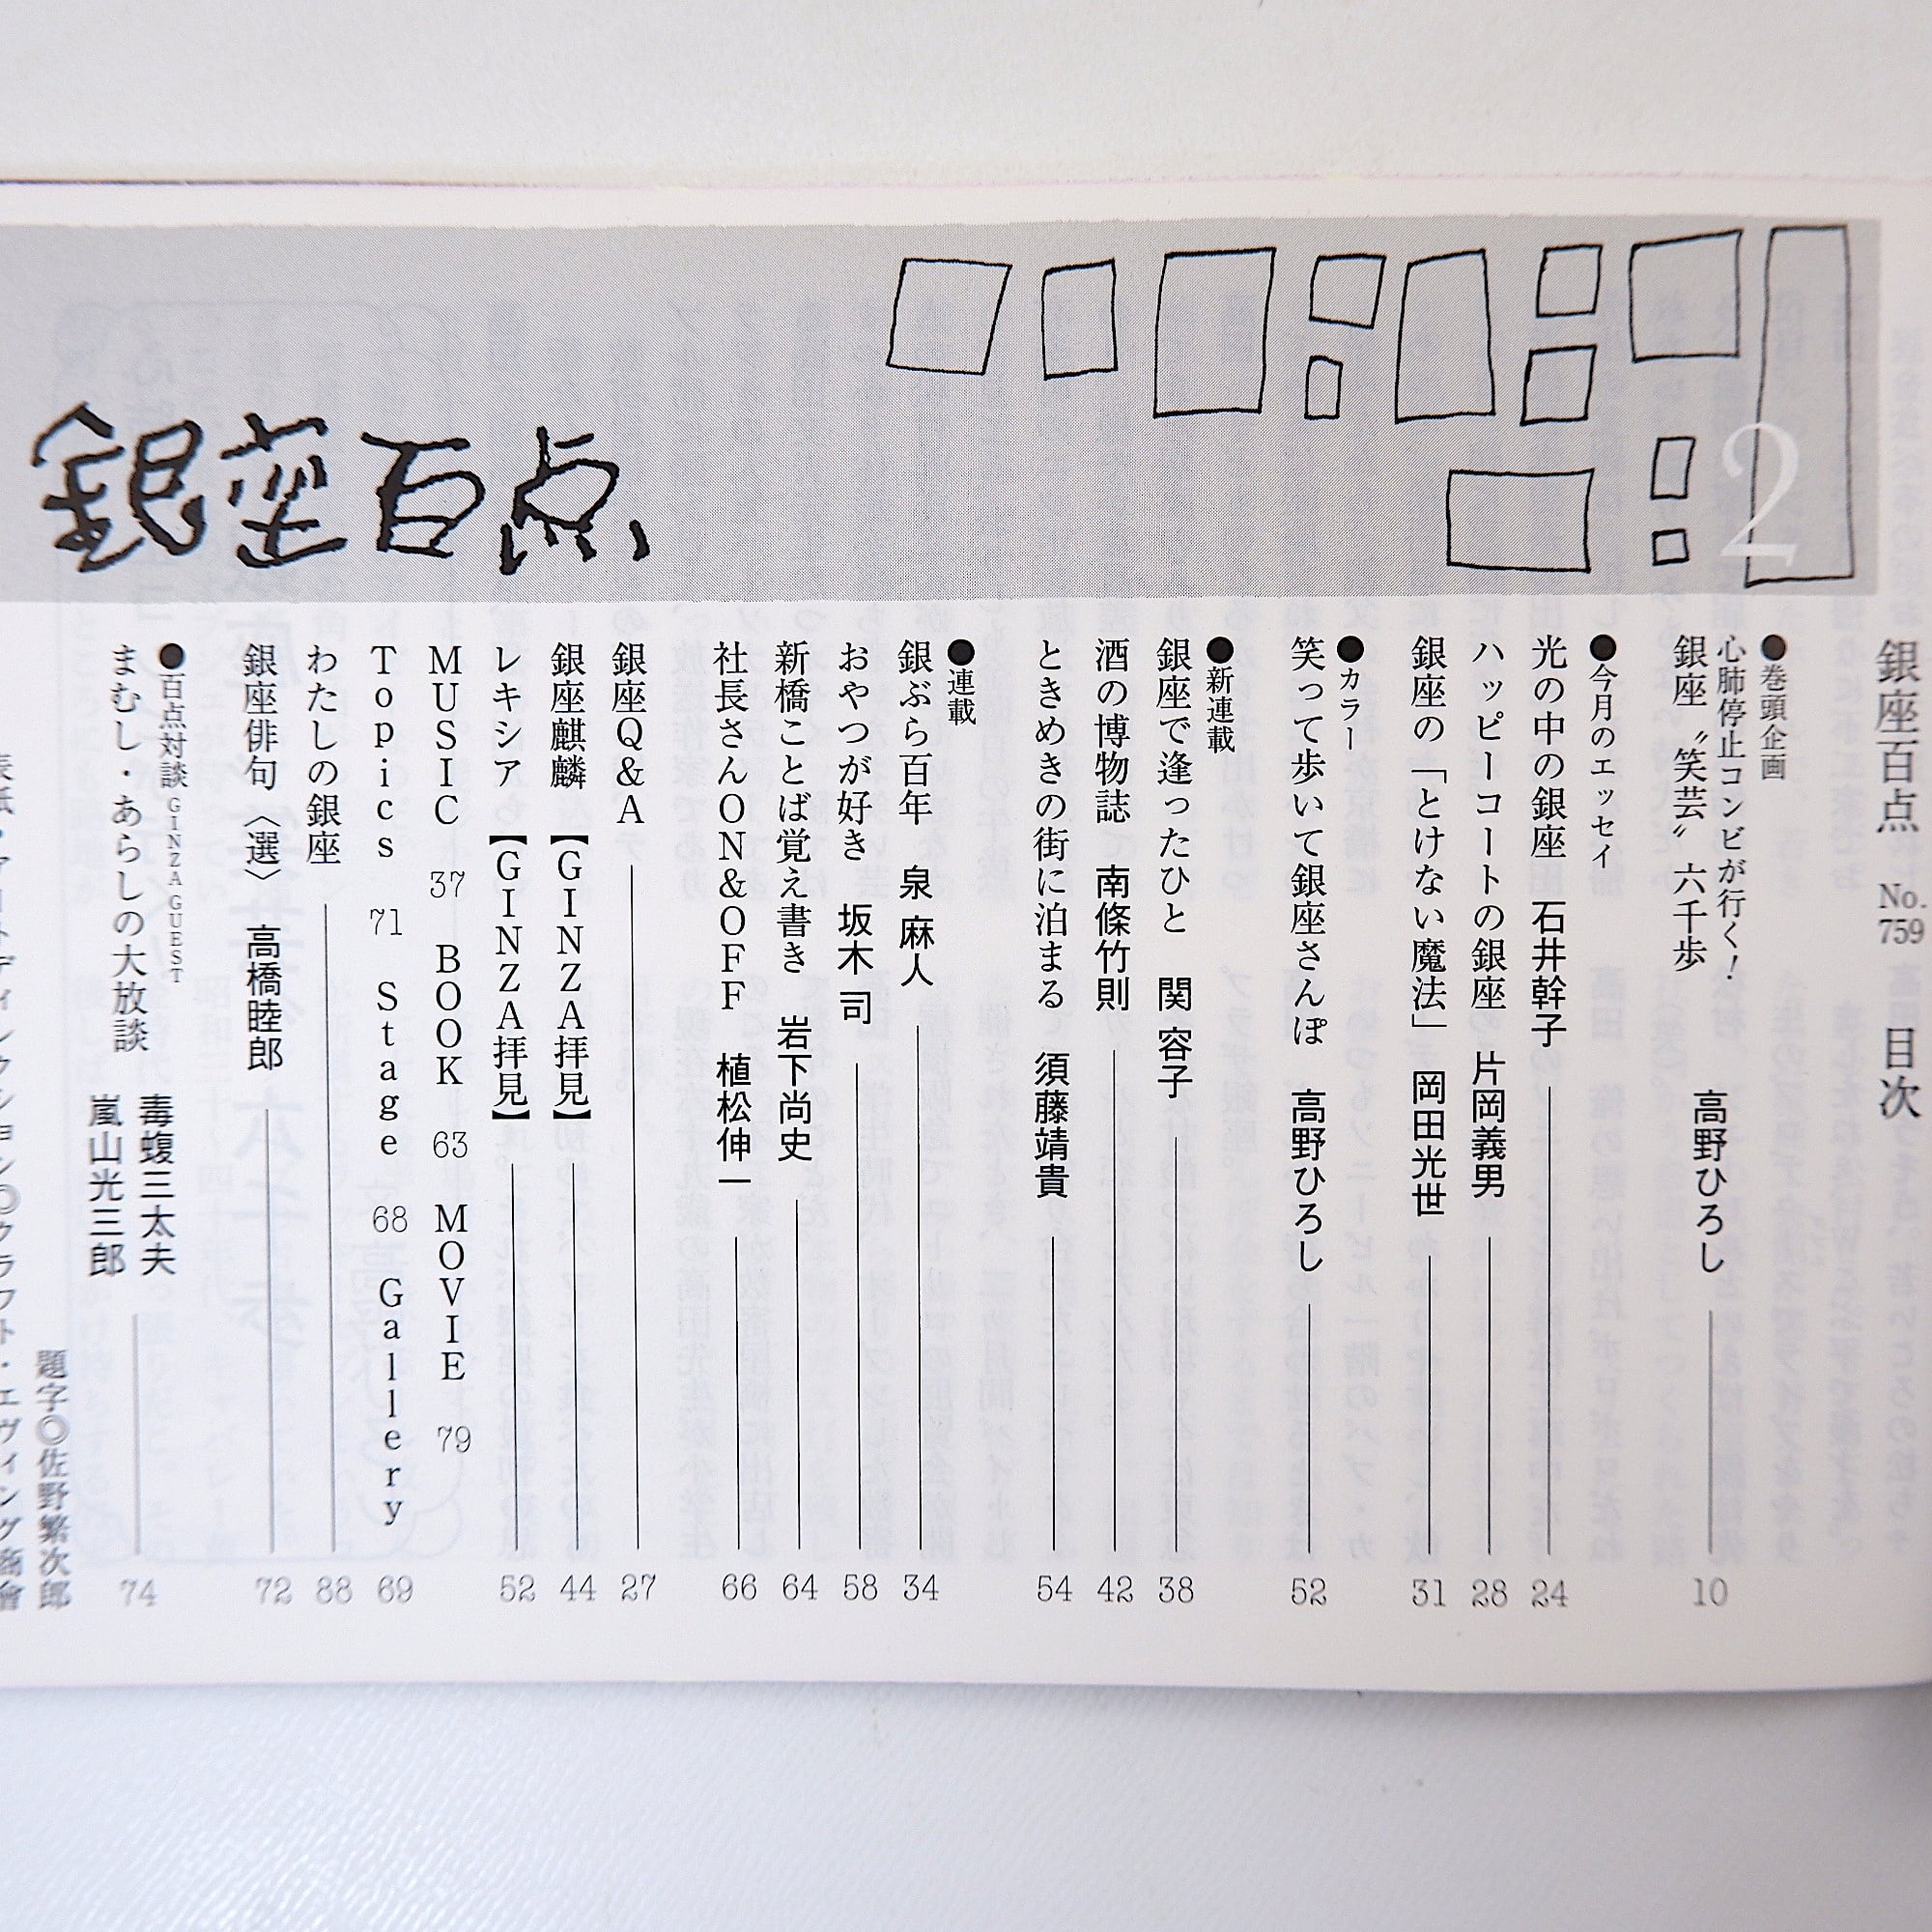 銀座百点
2
銀座百点 No.759 目次
●巻頭企画
心肺停止コンビが行く!
銀座〝笑芸〟六千歩 高野ひろし 10
●今月のエッセイ
光の中の銀座 石井幹子 24
ハッピーコートの銀座 片岡義男 28
銀座の「とけない魔法」 岡田光世 31
●カラー
笑って歩いて銀座さんぽ 高野ひろし 52
●新連載
銀座で逢ったひと 関 容子 38
酒の博物誌 南條竹則 42
ときめきの街に泊まる 須藤靖貴 54
●連載
銀ぶら百年 泉 麻人 34
おやつが好き 坂木 司 58
新橋ことば覚え書き 岩下尚史 64
社長さんON&OFF 植松伸一 66
銀座Q&A 27
銀座麒麟 【GINZA拝見】 44
レキシア 【GINZA拝見】 52
MUSIC 37 BOOK 63 MOVIE 79
Topics 71 Stage 68 Gallery 69
わたしの銀座 88
銀座俳句〈選〉 高橋睦郎 72
●百点対談 GINZA GUEST
まむし・あらしの大放談 毒蝮三太夫 嵐山光三郎 74
題字◎佐野繁次郎
表紙・アートディレクション◎クラフト・エヴィング商會